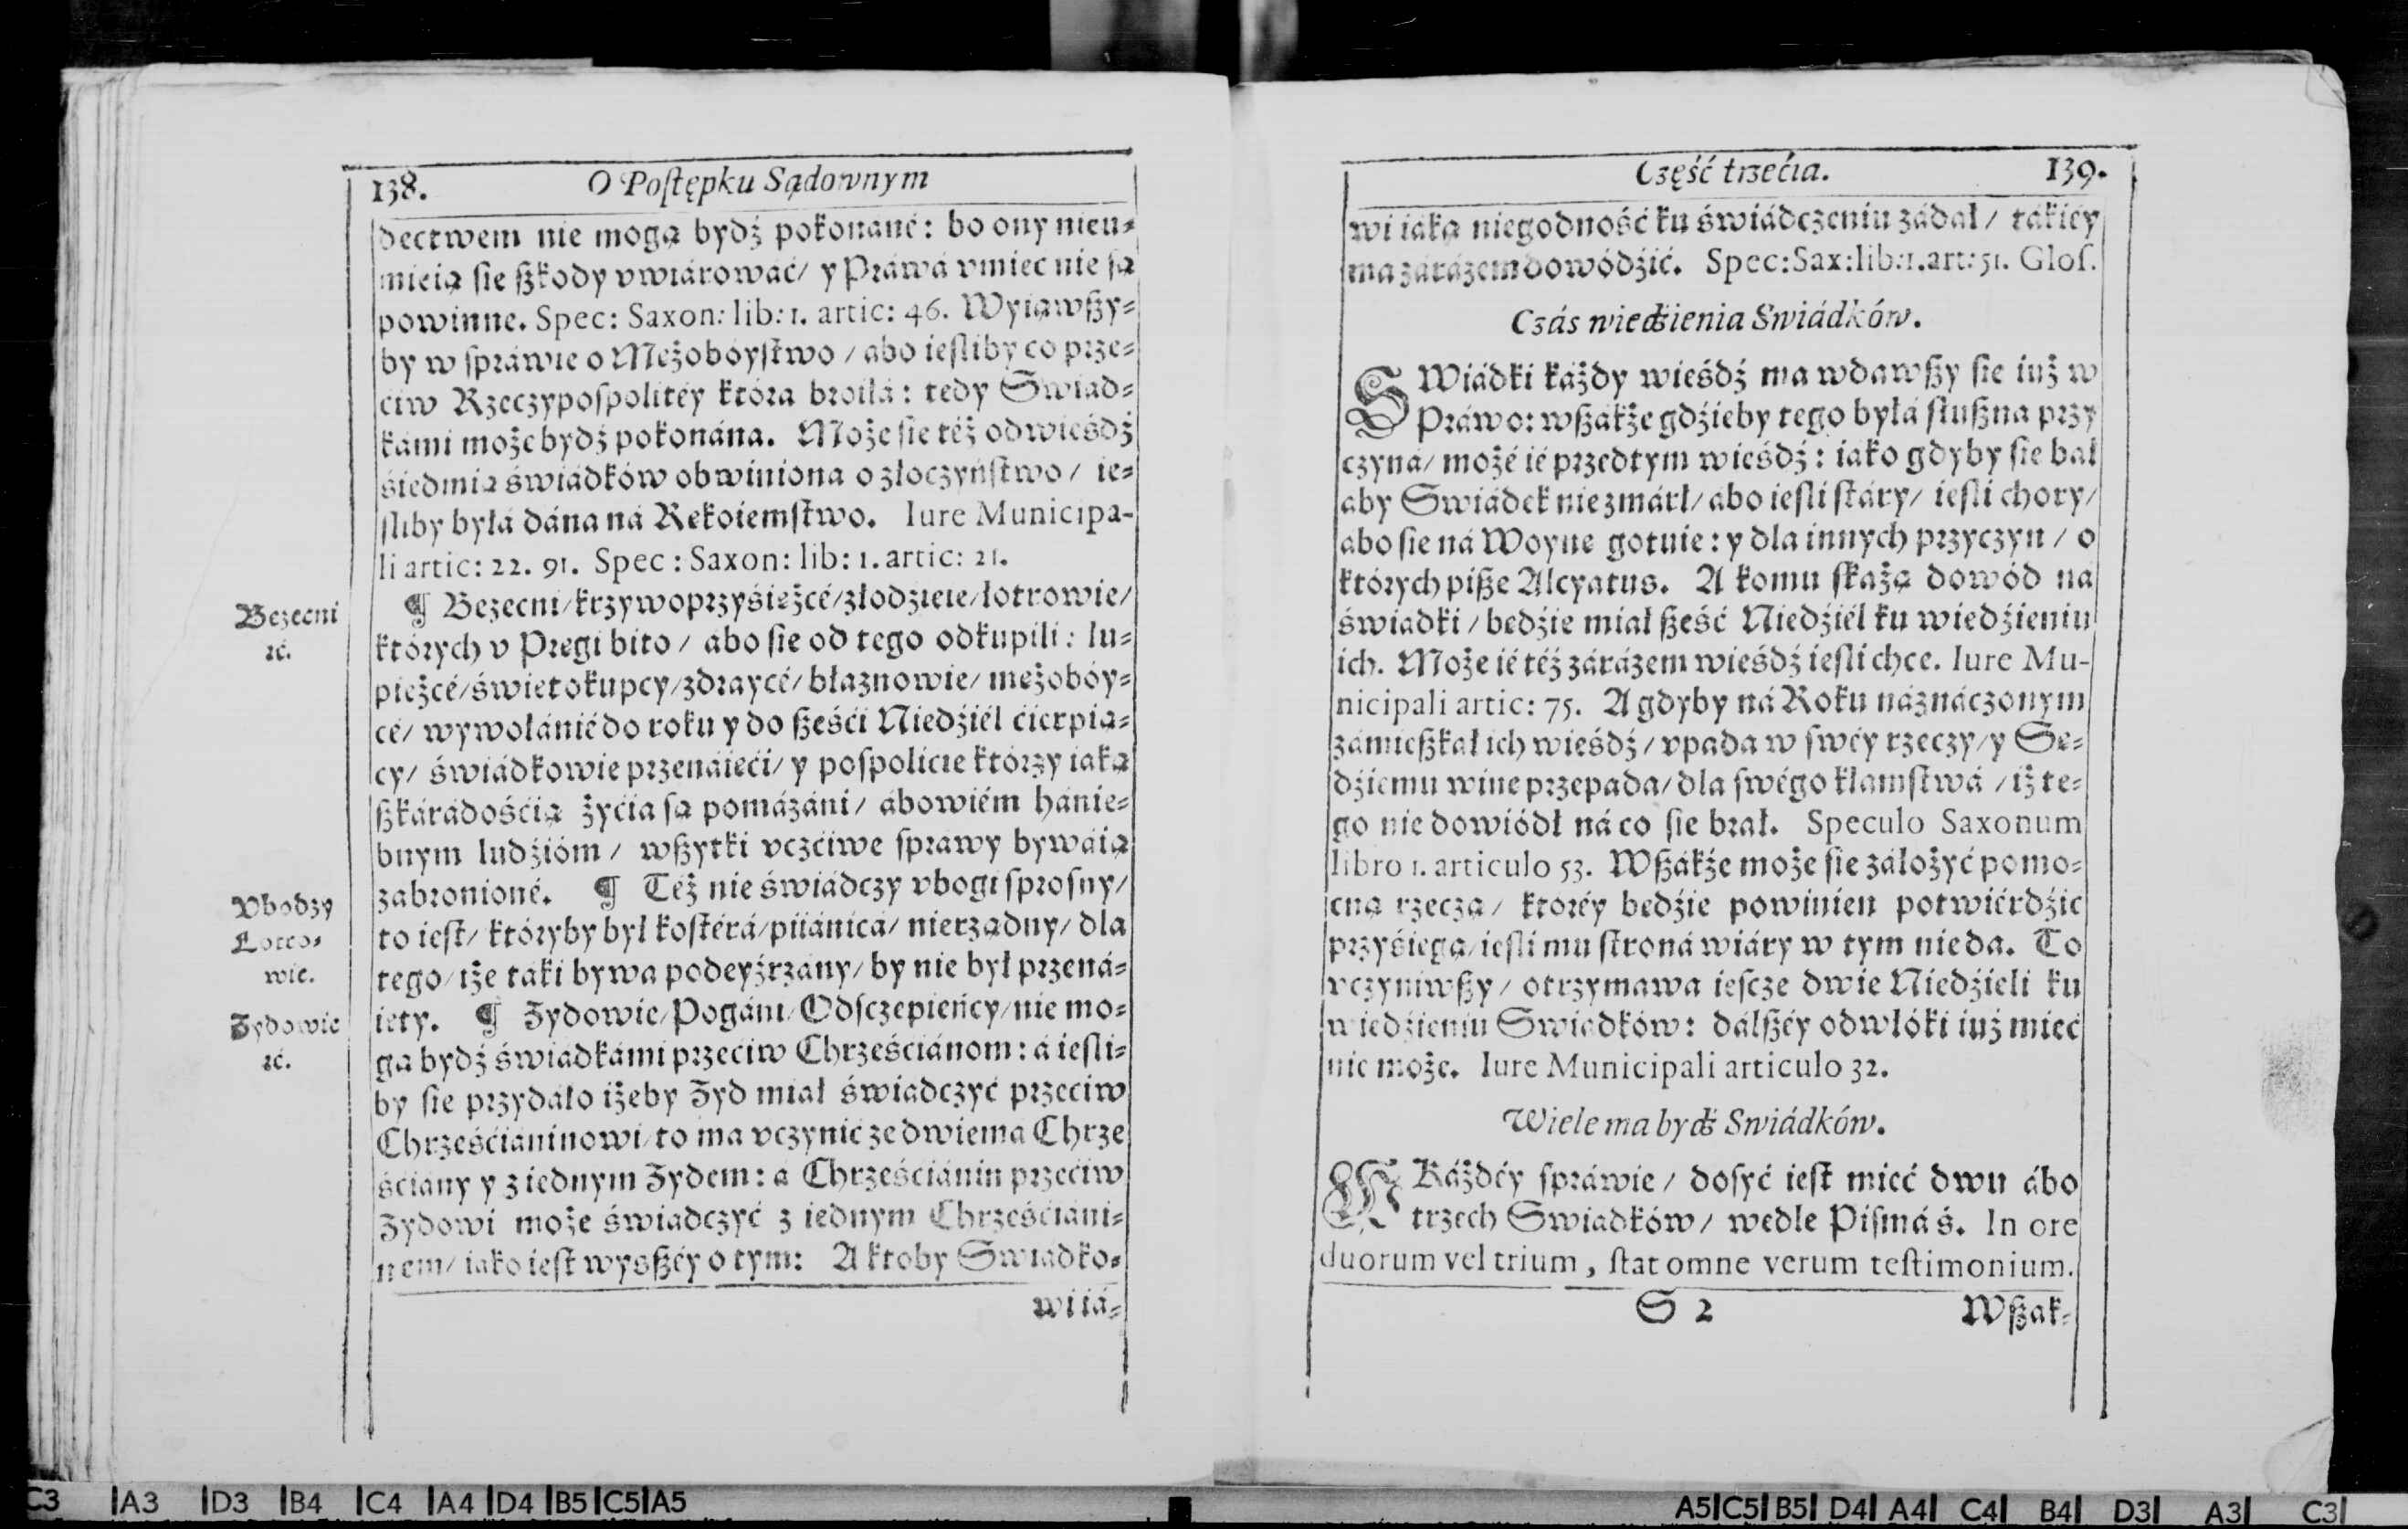 138. O Poſtępku Sądownym
dectwem nie mogą bydź pokonané: bo ony nieu-
mieią ſie ſzkody vwiárowáć/ y Práwá vmieć nie ſą
powinne. Spec: Saxon: lib: 1. artic: 46. Wyiąwſzy-
by w ſpráwie o Mężobóyſtwo / ábo ieſliby co prze-
ćiw Rzeczypoſpolitéy która broiłá: tedy Swiad-
kámi może bydź pokonána. Może ſie téż odwieśdź
śiedmią świádków obwiniona o złoczyńſtwo / ie-
ſliby byłá dána ná Rękoiemſtwo. Iure Municipa-
li artic: 22. 91. Spec: Saxon: lib: 1. artic: 21.
Bezecni
¶ Bezecni/krzywoprzyśiężcé/złodzieie/łotrowie/
ꝛć.
których v Pręgi bito / ábo ſie od tego odkupili: łu-
pieżcé/świętokupcy/zdraycé/błaznowie/ mężobóy-
cé/ wywołánié do roku y do ſześći Niedźiél ćierpią-
cy/ świádkowie przenáięći/ y poſpolićie którzy iaką
ſzkárádośćią żyćia ſą pomázáni/ ábowiém hánie-
bnym ludźióm / wſzytki vczćiwe ſprawy bywáią
Vbodzy
zabronioné. ¶ Téż nie świádczy vbogi ſproſny/
Lotro-
to ieſt/ któryby był koſtérá/piiánicá/ nierządny/ dla
wie.
tego/ iże táki bywa podeyźrzány/ by nie był przená-
Zydowie
ięty. ¶ Zydowie/Pogáni/Odſczepieńcy/nie mo-
ꝛć.
gą bydź świadkámi przećiw Chrześćiánom: á ieſli-
by ſie przydáło iżeby Zyd miał świadczyć przećiw
Chrześćiáninowi/to ma vczynić ze dwiema Chrze
śćiány y z iednym Zydem: a Chrześćiánin przećiw
Zydowi może świadczyć z iednym Chrześćiáni-
nem/ iako ieſt wyſſzéy o tym: A ktoby Swiadko-
wi iá-
Część trzećia. 139.
wi iáką niegodność ku świádczeniu zádał/ tákiéy
ma zárázem dowódźić. Spec:Sax:lib:1.art:51. Gloſ.
Czás wiedźienia Swiádków.
SWiádki káżdy wieśdź ma wdawſzy ſie iuż w
Práwo: wſzákże gdźieby tego byłá ſłuſzna przy
czyná/ możé ié przedtym wieśdź: iako gdyby ſie bał
aby Swiádek nie zmárł/ abo ieſli ſtáry/ ieſli chory/
abo ſie ná Woynę gotuie: y dla innych przyczyn / o
których piſze Alcyatus. A komu ſkażą dowód na
świadki / będźie miał ſześć Niedźiél ku wiedźieniu
ich. Może ié téż zárázem wieśdź ieſli chce. Iure Mu-
nicipali artic: 75. A gdyby ná Roku náznáczonym
zámieſzkał ich wieśdź / vpada w ſwéy rzeczy/y Sę-
dźiemu winę przepada/ dla ſwégo kłamſtwá / iż te-
go nie dowiódł ná co ſie brał. Speculo Saxonum
libro 1. articulo 53. Wſzákże może ſie záłożyć pomo-
cną rzeczą/ któréy będźie powinien potwiérdźić
przyśięgą/ieſli mu ſtroná wiáry w tym nie da. To
vczyniwſzy/ otrzymawa ieſcze dwie Niedźieli ku
wiedźieniu Swiadków: dálſzéy odwłóki iuż mieć
nie może. Iure Municipali articulo 32.
Wiele ma bydź Swiádków.
W Káżdéy ſpráwie/ doſyć ieſt mieć dwu ábo
trzech Swiadków/ wedle Piſmá ś. In ore
duorum vel trium, ſtat omne verum teſtimonium.
S 2 Wſzak-
C3 A3 D3 B4 C4 A4 D4 B5 C5 A5
A5 C5 B5 D4 A4 C4 B4 D3 A3 C3